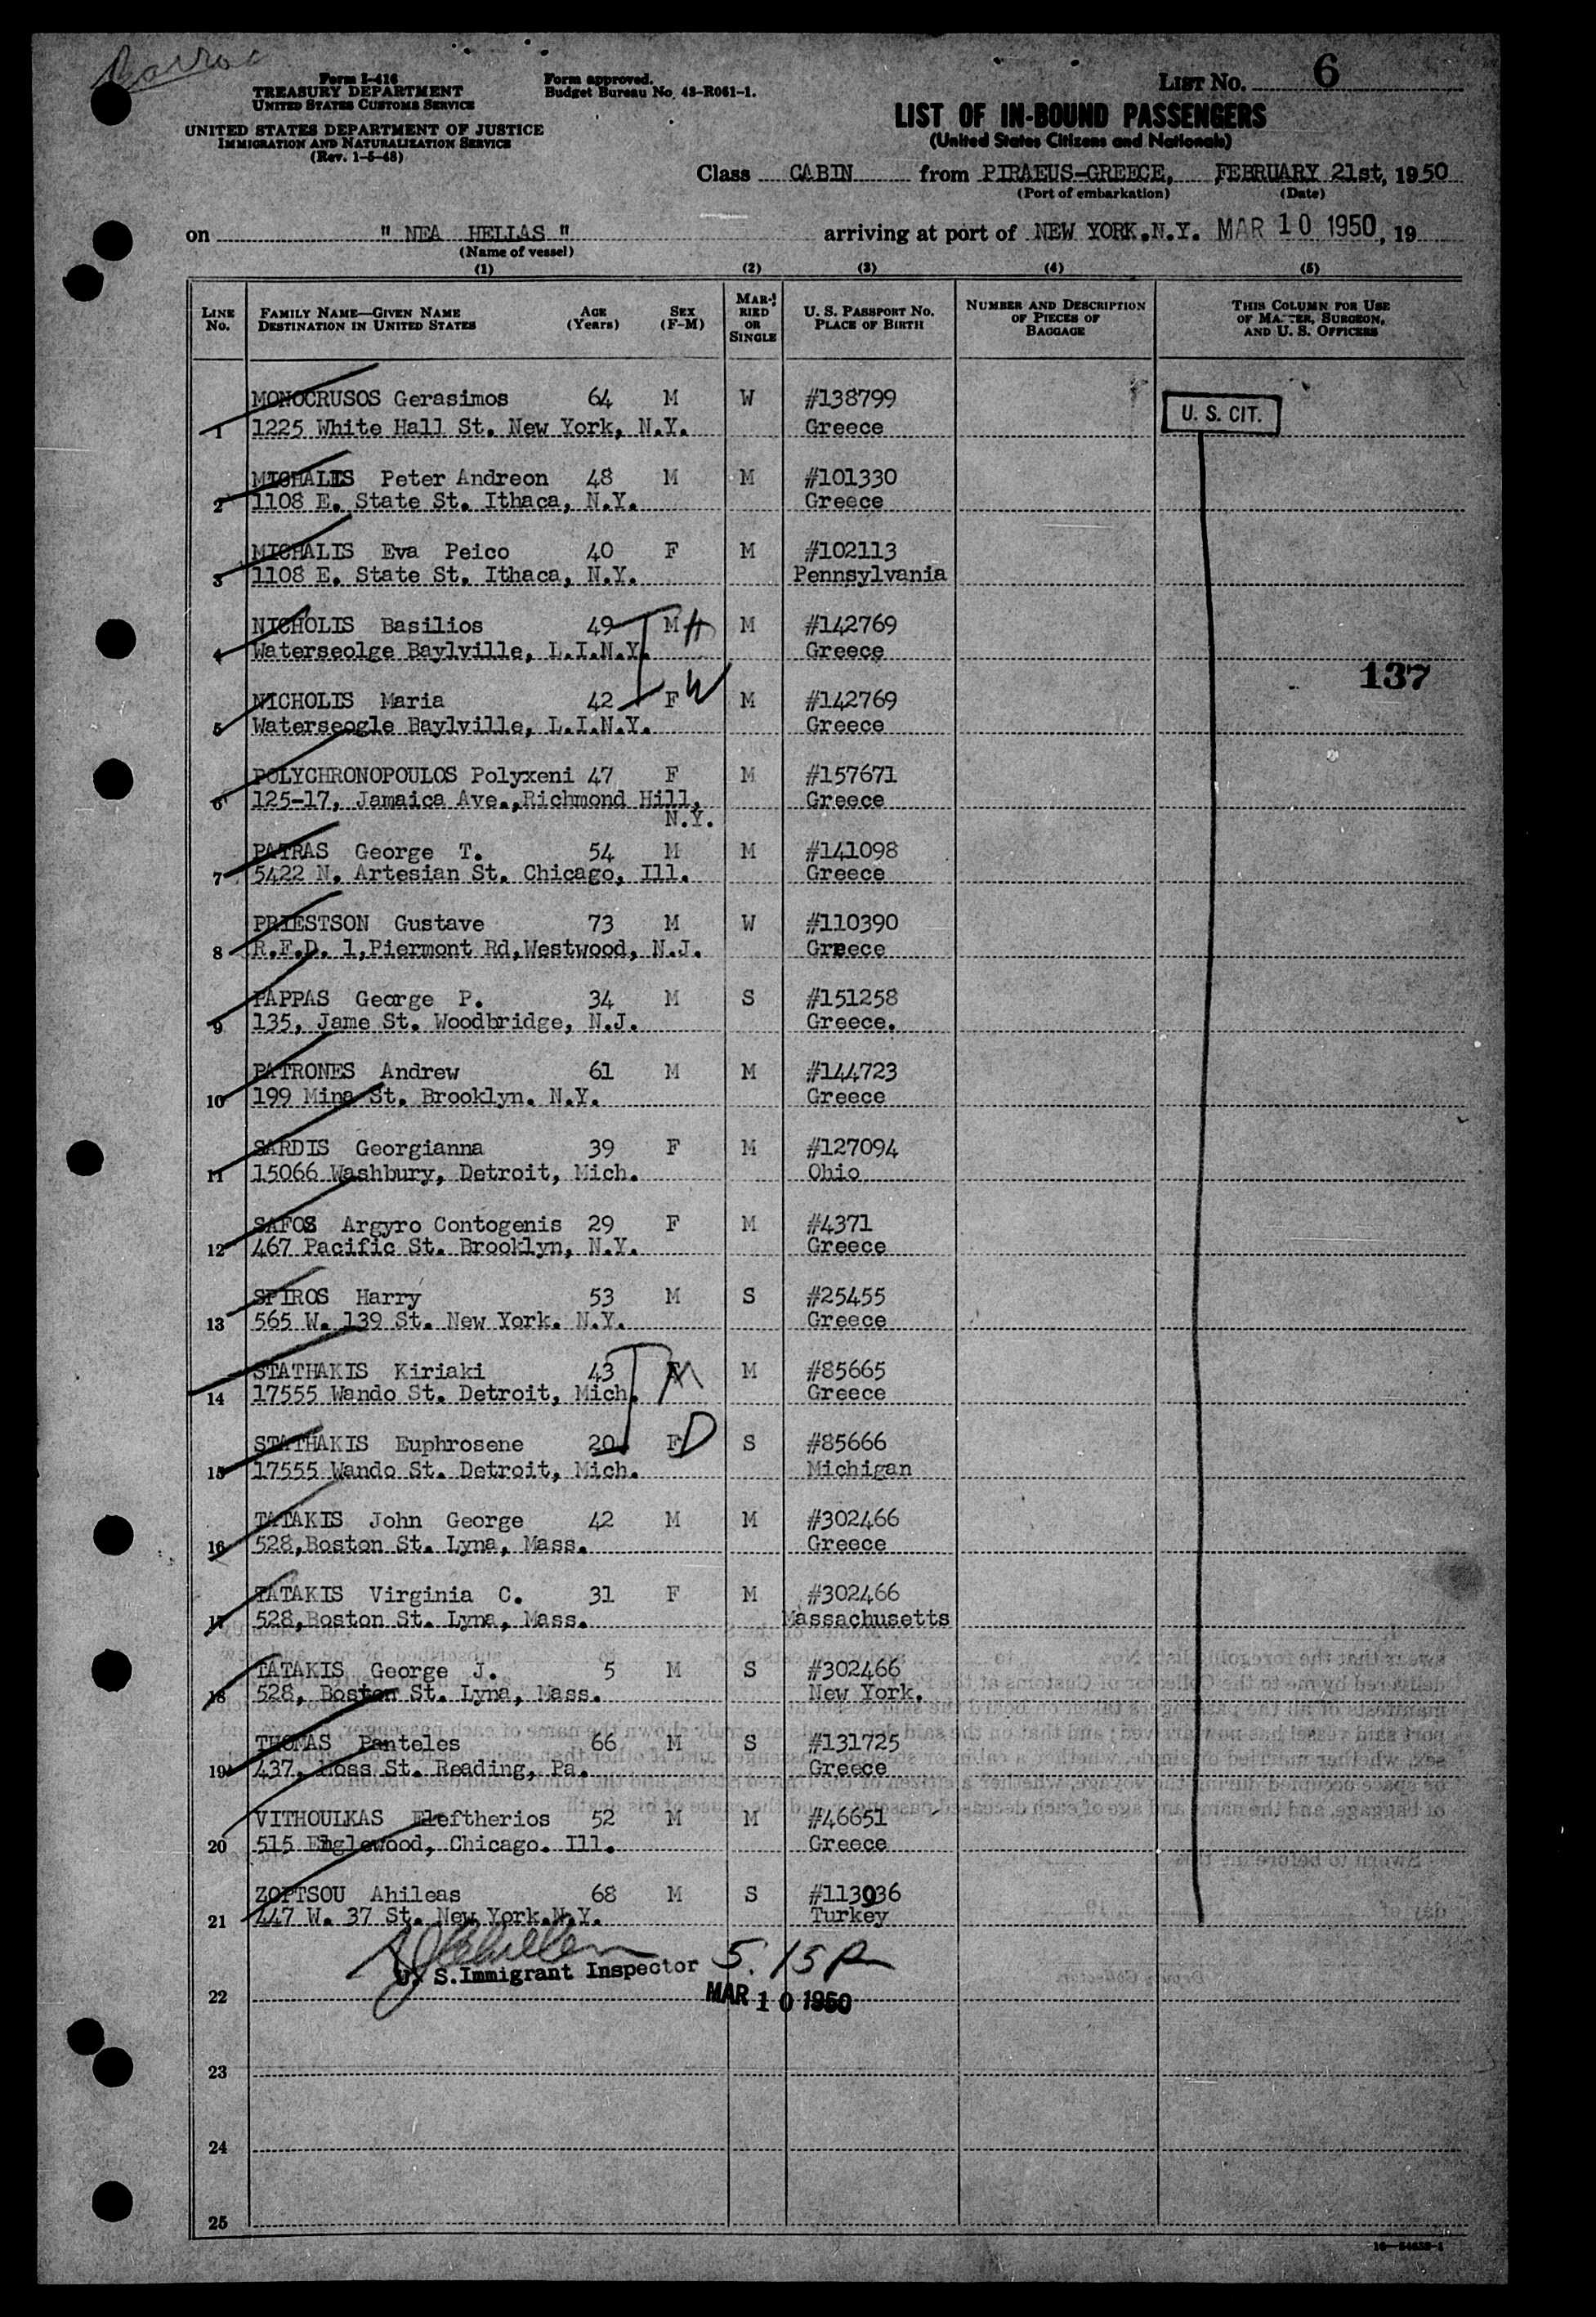 Form I-416
TREASURY DEPARTMENT
UNITED STATES CUSTOMS SERVICE
UNITED STATES DEPARTMENT OF JUSTICE
IMMIGRATION AND NATURALIZATION SERVICE
(Rev. 1-5-48)
Form approved.
Budget Bureau No. 43-R061-1.
LIST No. 6
LIST OF IN-BOUND PASSENGERS
(United States Citizens and Nationals)
Class CABIN from PIRAEUS-GREECE, FEBRUARY 21st, 1950
(Port of embarkation) (Date)
on " NEA HELLAS " arriving at port of NEW YORK.N.Y. MAR 10 1950, 19
(Name of vessel)
(1) (2) (3) (4) (5)
LINE No. FAMILY NAME—GIVEN NAME DESTINATION IN UNITED STATES AGE (Years) SEX (F-M) MARRIED OR SINGLE U. S. PASSPORT NO. PLACE OF BIRTH NUMBER AND DESCRIPTION OF PIECES OF BAGGAGE THIS COLUMN FOR USE OF MASTER, SURGEON, AND U. S. OFFICERS
MONOCRUSOS Gerasimos 64 M W #138799
U. S. CIT.
1 1225 White Hall St. New York, N.Y. Greece
MICHALIS Peter Andreon 48 M M #101330
2 1108 E. State St. Ithaca, N.Y. Greece
MICHALIS Eva Peico 40 F M #102113
3 1108 E. State St. Ithaca, N.Y. Pennsylvania
NICHOLIS Basilios 49 M H M #142769
4 Waterseolge Baylville, L.I.N.Y. Greece
137
NICHOLIS Maria 42 F W M #142769
5 Waterseogle Baylville, L.I.N.Y. Greece
POLYCHRONOPOULOS Polyxeni 47 F M #157671
6 125-17, Jamaica Ave.,Richmond Hill, Greece
N.Y.
PATRAS George T. 54 M M #141098
7 5422 N. Artesian St. Chicago, Ill. Greece
PRIESTSON Gustave 73 M W #110390
8 R.F.D. 1,Piermont Rd,Westwood, N.J. Greece
PAPPAS George P. 34 M S #151258
9 135, Jame St. Woodbridge, N.J. Greece.
PATRONES Andrew 61 M M #144723
10 199 Mina St. Brooklyn. N.Y. Greece
SARDIS Georgianna 39 F M #127094
11 15066 Washbury, Detroit, Mich. Ohio
SAFOS Argyro Contogenis 29 F M #4371
12 467 Pacific St. Brooklyn, N.Y. Greece
SPIROS Harry 53 M S #25455
13 565 W. 139 St. New York. N.Y. Greece
STATHAKIS Kiriaki 43 F M M #85665
14 17555 Wando St. Detroit, Mich. Greece
STATHAKIS Euphrosene 20 F D S #85666
15 17555 Wando St. Detroit, Mich. Michigan
TATAKIS John George 42 M M #302466
16 528,Boston St. Lyna, Mass. Greece
TATAKIS Virginia C. 31 F M #302466
17 528,Boston St. Lyna, Mass. Massachusetts
TATAKIS George J. 5 M S #302466
18 528, Boston St. Lyna, Mass. New York.
THOMAS Panteles 66 M S #131725
19 437, Moss St. Reading, Pa. Greece
VITHOULKAS Eleftherios 52 M M #46651
20 515 Englewood, Chicago. Ill. Greece
ZOPTSOU Ahileas 68 M S #113036
21 447 W. 37 St. New York.N.Y. Turkey
U. S. Immigrant Inspector 5.15 P
22 MAR 10 1950
23
24
25